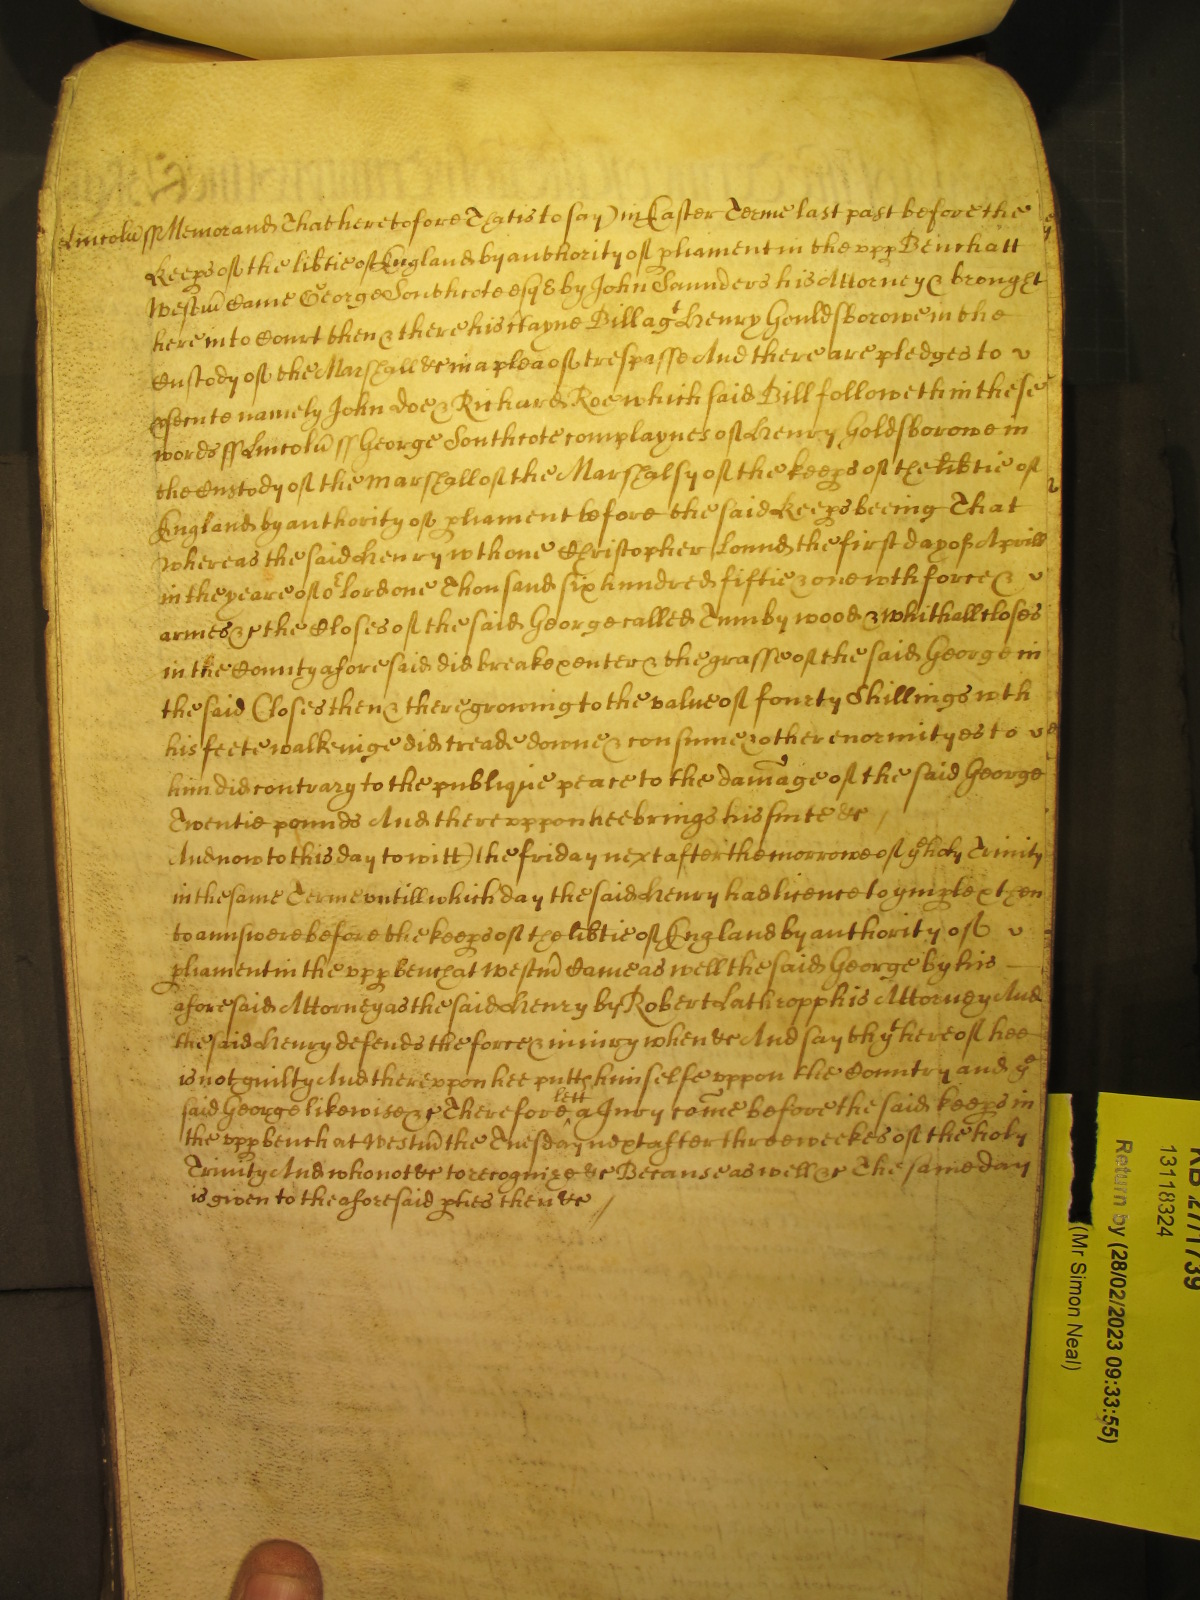 Lincoln ss Memorand That heretofore (That is to say) in Easter Terme last past before the
keeps of the libtie of England by authority of pliament in the upp Bench att
Westm Came George Southcote esq by John Saunders his Attorney & brought
here into Court then & there his ctayne Bill agt Henry Gouldsborowe in the
Custody of the Marshall &c in a plea of trespasse And there are pledges to
psecute namely John Doe & Richard Roe which said Bill followeth in these
words ss Lincoln ss George Southcote complaynes of Henry Goldsborowe in
the Custody of the Marshall of the Marshalsy of the keeps of the libtie of
England by authority of pliament before the said keeps beeing That
whereas the said Henry wth one Christopher Lound the first day of Aprill
in the yeare of or Lord one Thousand six hundred fiftie & one wth force &
armes &c the Closes of the said George called Tumby wood & whithall closes
in the County aforesaid did breake & enter & the grasse of the said George in
the said Closes then & there growing to the value of fourty Shillings wth
his feete walkeinge did treade downe & consume & other enormityes to
him did contrary to the publique peace to the damage of the said George
Twentie pounds And thereuppon hee brings his suite &c
And now to this day to witt) the friday next after the morrowe of ye holy Trinity
in the same Terme untill which day the said Henry had licence to imple & then
to answere before the keeps of the libtie of England by authority of
pliament in the upp bench at Westm Came as well the said George by his
aforesaid Attorney as the said Henry by Robert Lathropp his Attorney And
the said Henry defends the force & iniury when &c And say th yt hereof hee
is not guilty And thereuppon hee putts himselfe uppon the Country and ye
said George likewise &c Therefore lett a Jury come before the said keeps in
the upp bench at Westm the Tuesday next after three weekes of the holy
Trinity And who not &c to recognize &c Because as well &c The same day
is given to the aforesaid pties then &c
KB 27/1739
13118324
Return by (28/02/2023 09:33:55)
(Mr Simon Neal)